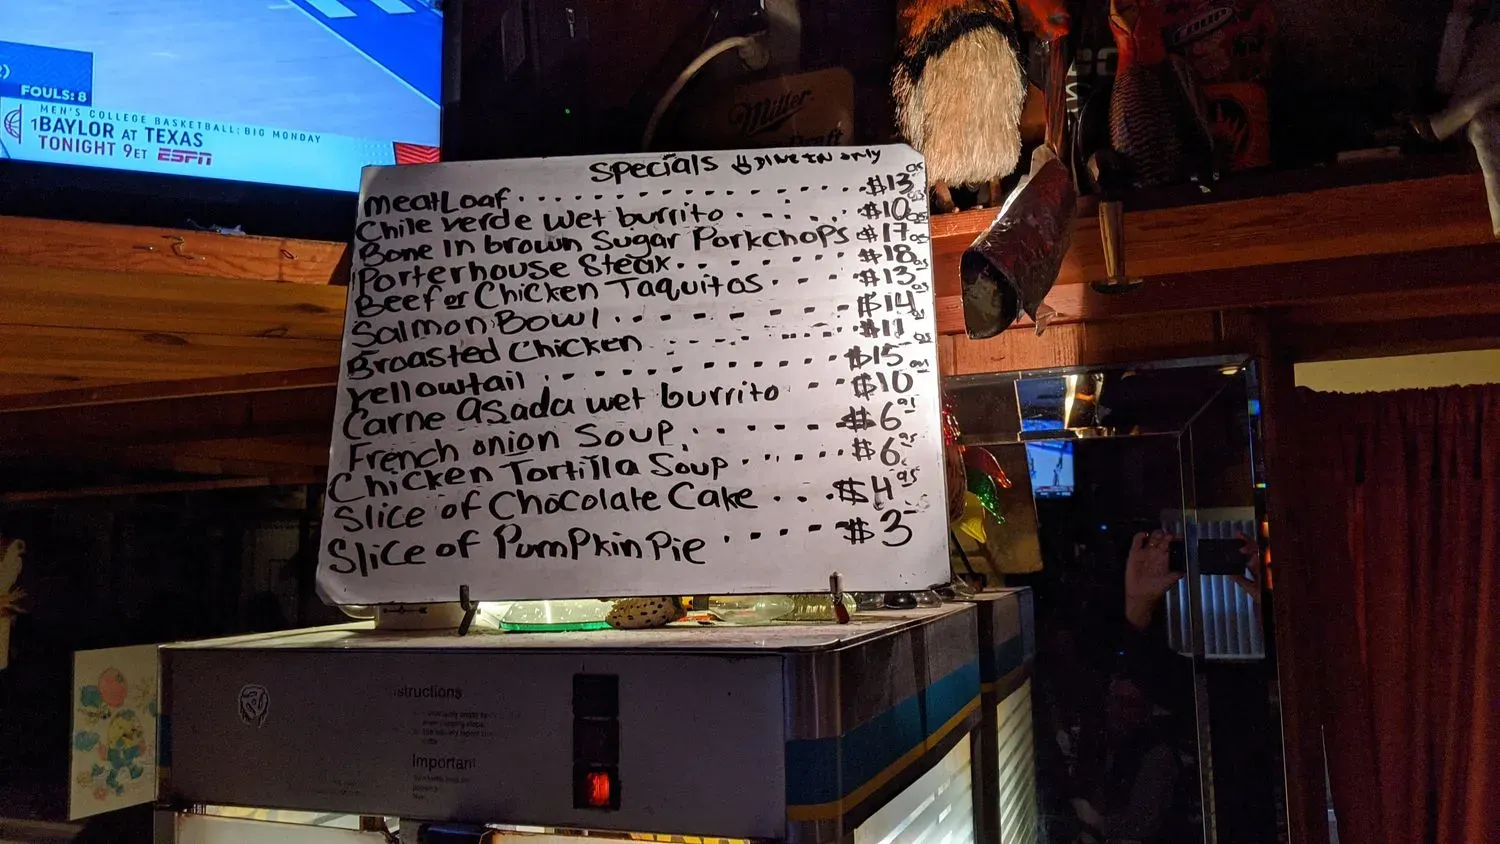 FOULS: 8
MEN'S COLLEGE BASKETBALL: BIG MONDAY
1BAYLOR AT TEXAS
TONIGHT 9ET ESPN
Miller
Specials DINE IN only
meatLoaf . . . . . . . . . . . . . $13 95
Chile verde wet burrito . . . . . . $10 95
Bone In brown Sugar PorkChops $17 95
Porterhouse Steak. . . . . . . $18 95
Beef or Chicken Taquitos . . . . $13 95
Salmon Bowl . . . . . . . . $14 95
Broasted Chicken . . . . . . . $11 95
Yellowtail . . . . . . . . . . $15 95
Carne asada wet burrito . . $10 95
French onion Soup . . . . . . $6 95
Chicken Tortilla Soup . . . . . $6 95
Slice of Chocolate Cake . . . $4 95
Slice of PumPkin Pie . . . . . $3
structions
Important